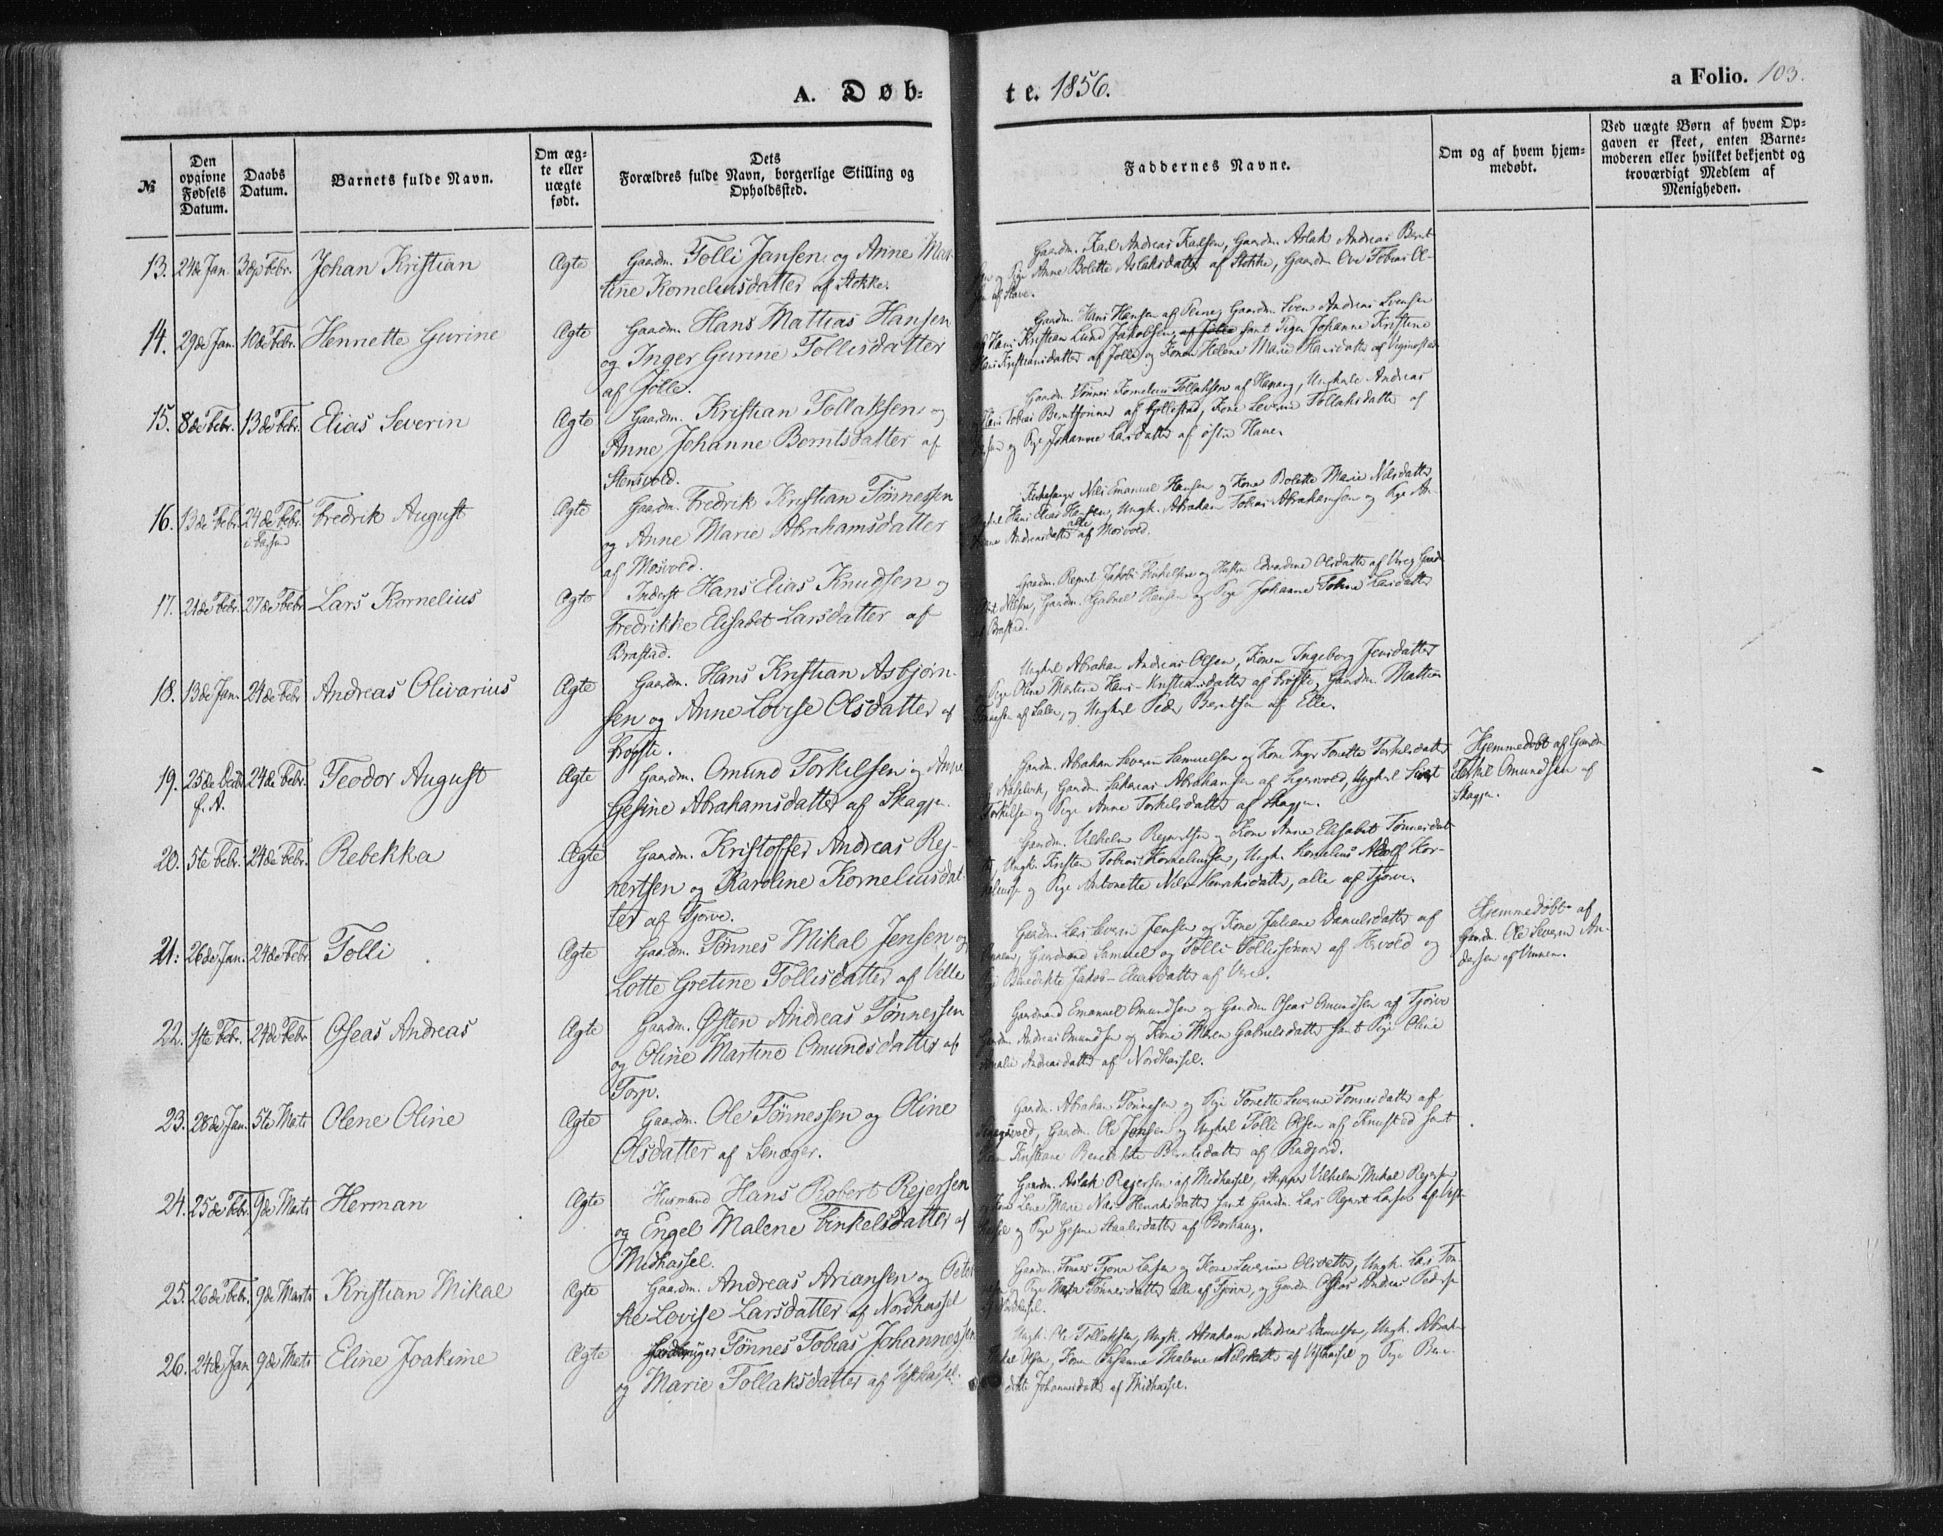 A. Døb-
te. 1856.
a Folio. 103.
№
Den opgivne Fødsels Datum.
Daabs Datum.
Barnets fulde Navn.
Om æg-
te eller
uægte
født.
Dets
Forældres fulde Navn, borgerlige Stilling og
Opholdssted.
Faddernes Navne.
Om og af hvem hjem-
medøbt.
Ved uægte Børn af hvem Op-
gaven er skeet, enten Barne-
moderen eller hvilket bekjendt og
troværdigt Medlem af
Menigheden.
13. 24de Jan. 3die Febr. Johan Kristian Ægte Gaardm. Tolli Jansen og Anne Mar-
tine Korneliusdatter af Stokke.
Gaardm. Karl Andreas Karlsen, Gaardm. Aslak Andreas Bernt-
sen og Pige Anne Bolette Aslaksdatter af Stokke, Gaardm. Ove Tobias Ol-
sen af Have.
14. 29de Jan. 10de Febr. Hennette Gurine Ægte Gaardm. Hans Mattias Hansen
og Inger Gurine Tollisdatter
af Jølle.
Gaardm. Hans Hansen af Penne, Gaardm. Sven Andreas Svensen
og Hans Kristian Lund Jakobsen af Jølle samt Pigen Johanne Kristine
Hans Kristiansdatter af Jølle og Konen Helene Marie Hansdatter af
15. 8de Febr. 13de Febr. Elias Severin Ægte Gaardm. Kristian Tollaksen og
Anne Johanne Berntsdatter af
Stensvold.
Gaardm. Tønnes Kornelius Tollaksen af Hanang, Ungkarle Andreas
og Hans Tobias Berntsønner af Gjellestad, Kone Severine Tollaksdatter af
og Pige Johanne Larsdatter af østre Hane.
16. 13de Febr. 24de Febr. Fredrik August Ægte Gaardm. Fredrik Kristian Tønnessen
og Anne Marie Abrahamsdatter
af Mosvold.
Kirkesanger Nils Emanuel Hansen og Kone Bolette Marie Nilsdatter
Hans Elias Hansen, Ungk. Abraham Tobias Abrahamsen og Pige An-
Andreasdatter alle af Mosvold.
17. 21de Febr. 27de Febr. Lars Kornelius Ægte Inderst Hans Elias Knudsen og
Fredrikke Elisabet Larsdatter af
Brastad.
Gaardm. Reinert Jakob Torkelsen og Hustru Edvardine Olsdatter af Vreg, Gaardm.
Nilsen, Gaardm. Gabriel Hansen og Pige Johanne Tomine Larsdatter
af Brastad.
18. 13de Jan. 24de Febr. Andreas Olivarius Ægte Gaardm. Hans Kristian Asbjørn-
sen og Anne Lovise Olsdatter af
Frøyste.
Ungkarl Abraham Andreas Olsen, Konen Ingeborg Jensdatter
og Pige Oline Martine Hans-Kristiansdatter af Frøyste, Gaardm. Mattias
Tønnesen af Sælen, og Ungkarl Peder Berntsen af Elle.
19. 25de Decbr. f. A. 24de Febr. Teodor August Ægte Gaardm. Omund Torkilsen og Anne
Gesine Abrahamsdatter af Skagje.
Gaardm. Abraham Severin Samuelsen og Kone Inger Tonette Torkelsdatter
Gaardm. Sakarias Abrahamsen af Sigersvold, Ungkarl Sivert
Torkilsen og Pige Anne Torkelsdatter af Skagjen.
Hjemmedøbt af Gaardm.
Torkil Omundsen af
Skagjen.
20. 5te Febr. 24de Febr. Rebekka Ægte Gaardm. Kristoffer Andreas Rej-
nertsen og Karoline Korneliusdat-
ter af Tjørve.
Gaardm. Vilhelm Rejnertsen og Kone Anne Elisabet Tønnesdat-
ter, Ungk. Kristen Tobias Korneliussen, Ungk. Kornelius Adolf Kor-
neliussen og Pige Antonette Nils-Henriksdatter, alle af Tjørve.
21. 26de Jan. 24de Febr. Tolli Ægte Gaardm. Tønnes Mikal Jensen og
Lotte Gretine Tollisdatter af Velle
Gaardm. Lars Severin Jensen og Kone Juliane Danielsdatter af
Vinnem, Gaardmænd Samuel og Tolli Tollisønner af Hervold og
Pige Benedikte Jakob-Eliasdatter af Vere.
Hjemmedøbt af
Gaardm. Ole Severin An-
dersen af Vinnem.
22. 1ste Febr. 24de Febr. Oseas Andreas Ægte Gaardm. Østen Andreas Tønnessen
og Oline Martine Omundsdatter af
Torp.
Gaardmand Emanuel Omundsen og Gaardm. Oseas Omundsen af Tjørve
Gaardm. Andreas Omundsen og Kone Maren Gabrielsdatter samt Pige Oline
Amalie Andreasdatter af Nordhassel.
23. 28de Jan. 5te Marts Olene Oline Ægte Gaardm. Ole Tønnessen og Oline
Olsdatter af Senæger.
Gaardm. Abraham Tønnesen og Pige Tonette Severine Tønnesdatter af
Gaardm. Ole Jensen og Ungkarl Tolli Olsen af Knustad samt
Kristiane Benedikte Berntsdatter af Rudjord.
24. 25de Febr. 9de Marts Herman Ægte Husmand Hans Robert Rejersen
og Engel Malene Tinkelsdatter af
Midhassel.
Gaardm. Aslak Rejersen af Midhassel, Skipper Vilhelm Mikal Rejersen
og Kone Lene Marie Nils Henriksdatter samt Gaardm. Lars Rejnert Larsen af Vest-
hassel og Pige Gesine Staalesdatter af Borhaug.
25. 26de Febr. 9de Marts Kristian Mikal Ægte Gaardm. Andreas Ariansen og Peter-
ke Lovise Larsdatter af Nordhassel
Gaardm. Tønnes Tjørve Larsen og Kone Severine Olsdatter, Ungk. Lars Tøn-
nesen og Pige Maren Tønnesdatter alle af Tjørve, og Gaardm. Oseas Andreas Pedersen
af Nordhassel.
26. 24de Jan. 9de Marts Eline Joakime Ægte Tønnes Tobias Johannessen
og Marie Tollaksdatter af Vesthassel.
Ungk. Ole Tollaksen, Ungk. Abraham Andreas Danielsen, Ungk. Abrah.
Mikal Olsen, Kone Susanne Malene Nilsdatter af Vesthassel og Pige Bene-
dikte Johannesdatter af Midhassel.